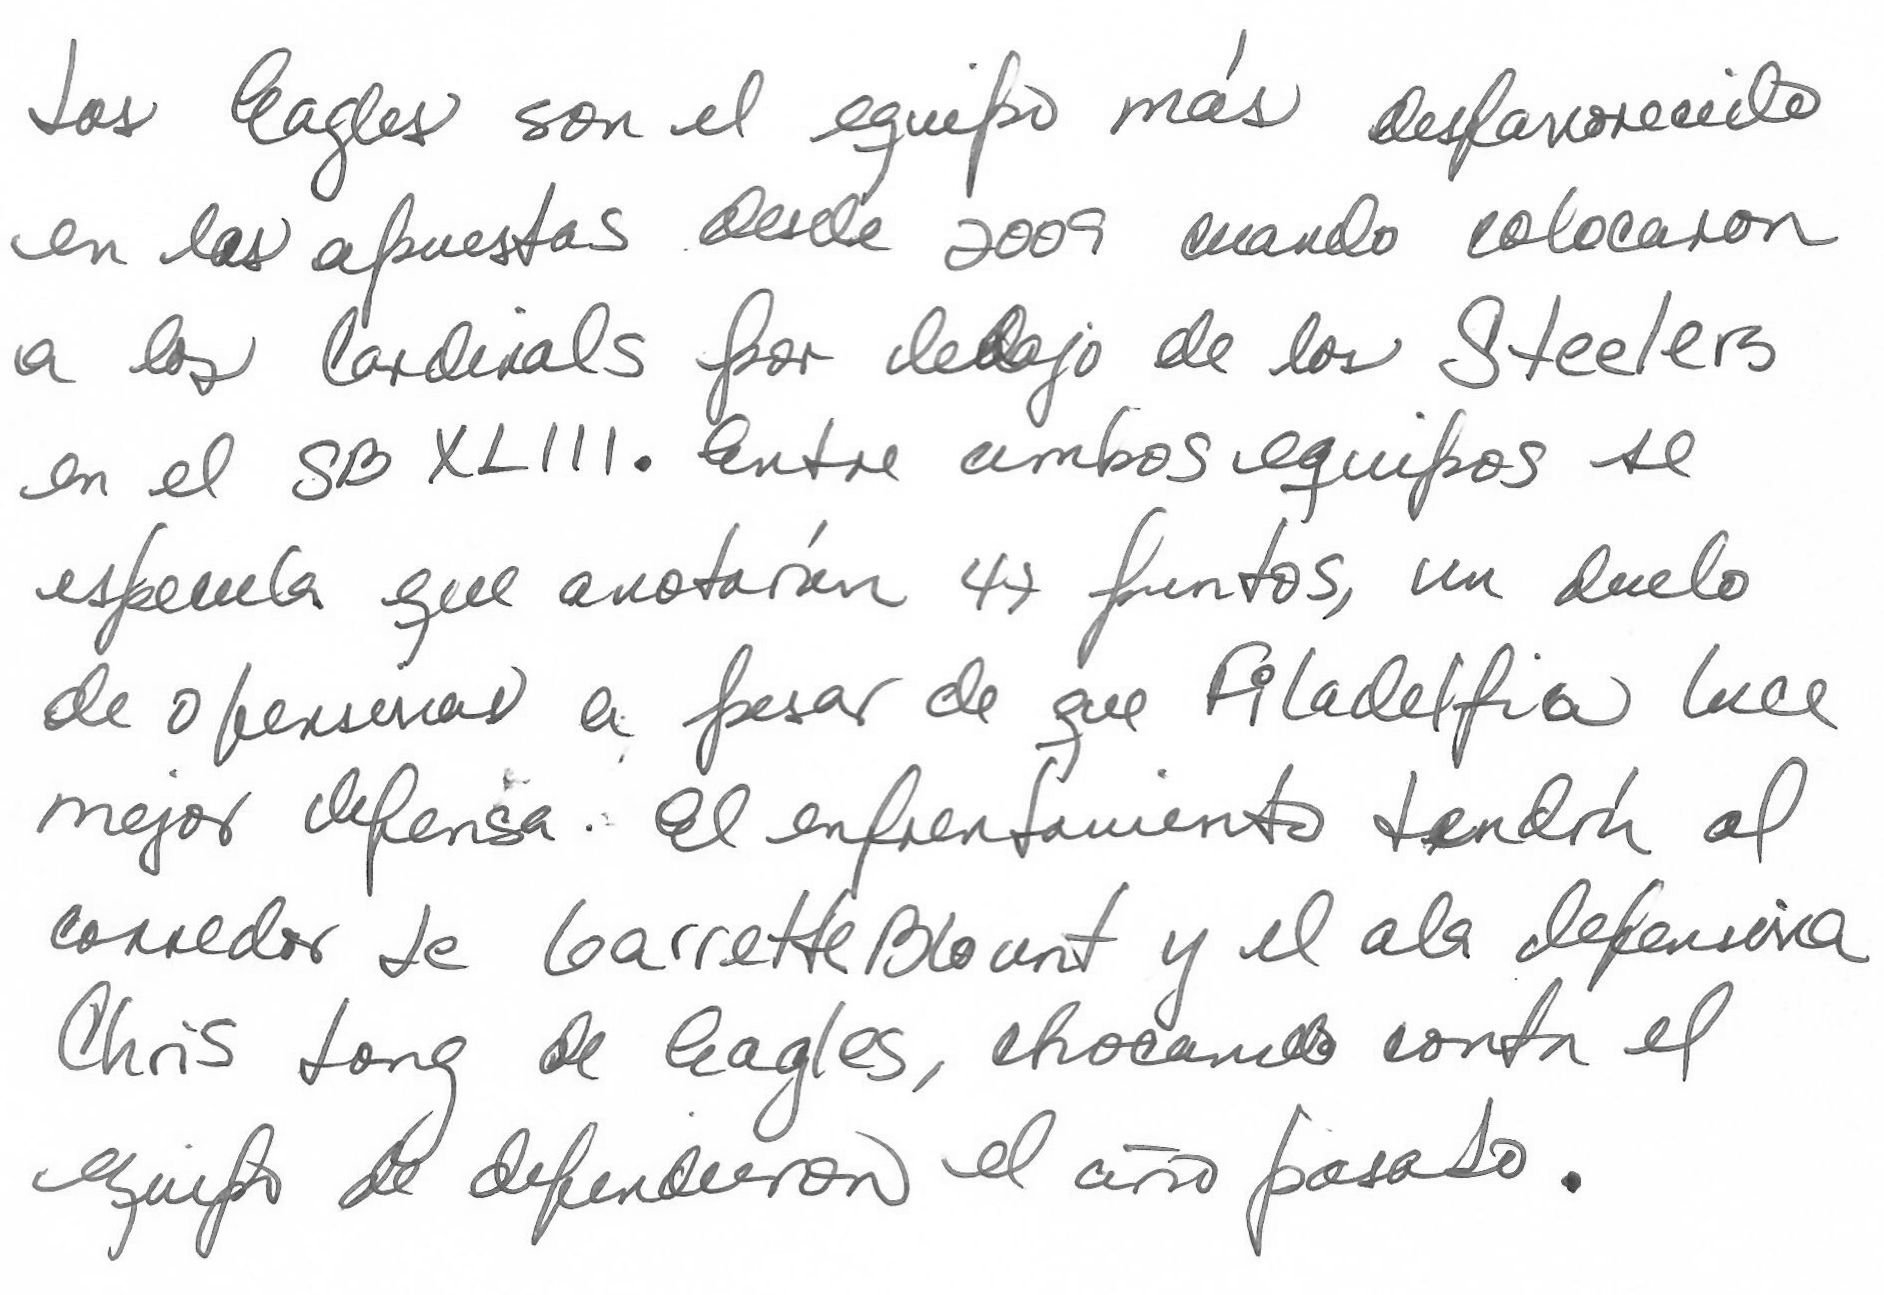 Los Eagles son el equipo más desfavorecido
en las apuestas desde 2009 cuando colocaron
a los Cardinals por debajo de los Steelers
en el SB XLIII. Entre ambos equipos se
especula que anotarán 47 puntos, un duelo
de ofensivas a pesar de que Filadelfia luce
mejor defensa. El enfrentamiento tendrá al
corredor Le Garrette Blount y el ala defensiva
Chris Long de Eagles, chocando contra el
equipo de defendieron el año pasado.